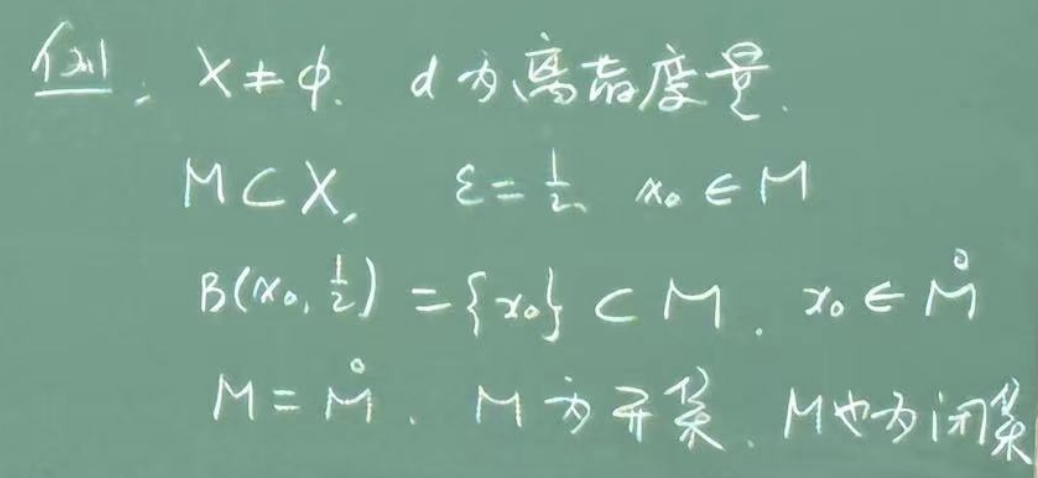 例. X≠φ. d为离散度量.
M⊂X, ε=1/2, x₀∈M
B(x₀,1/2)={x₀}⊂M. x₀∈M̊
M=M̊. M为开集. M也为闭集